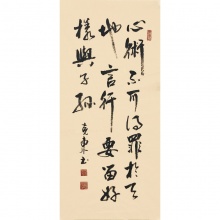 心術不可得罪於天
地言行要留好
樣與子孫